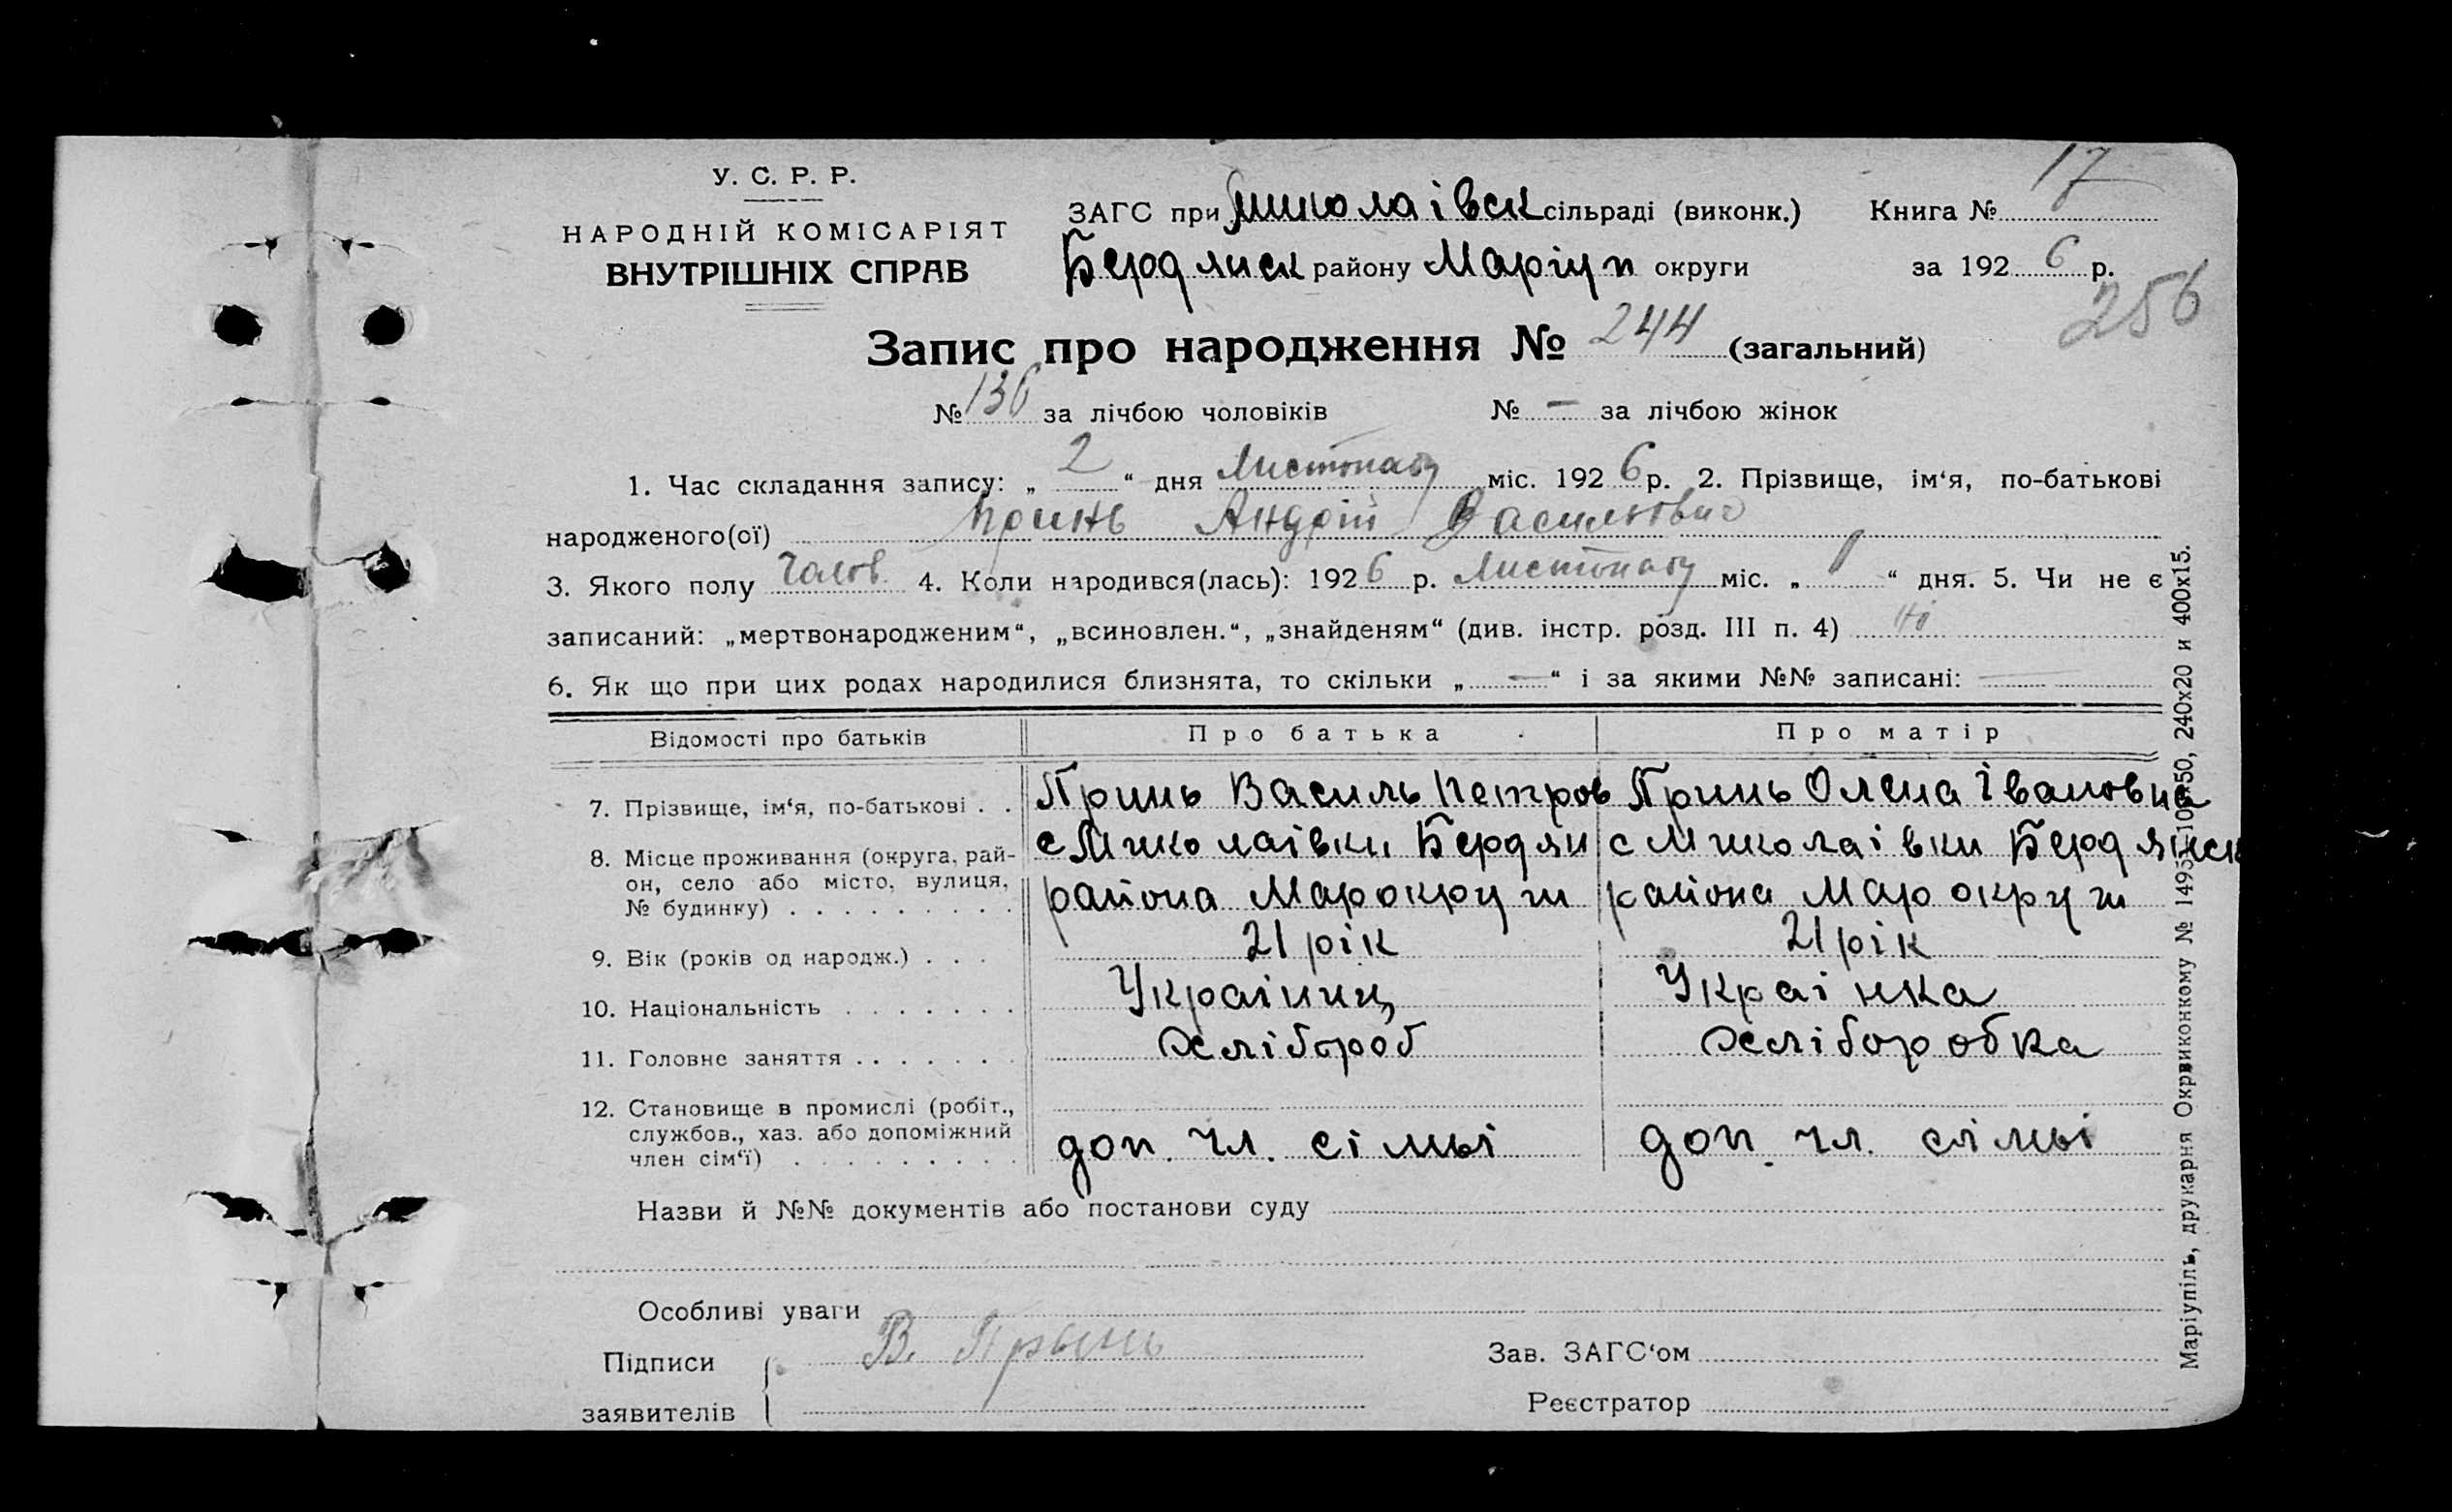 У. С. Р. Р.
НАРОДНІЙ КОМІСАРІЯТ
ВНУТРІШНІХ СПРАВ
ЗАГС при Миколаівск сільраді (виконк.) Книга № 17
Бердянск району Маріуп округи за 1926 р.
256
Запис про народження № 244 (загальний)
№ 136 за лічбою чоловіків № — за лічбою жінок
1. Час складання запису: „ 2 “ дня Листопаду міс. 1926 р. 2. Прізвище, ім‘я, по-батькові
народженого(ої) Принь Андрій Василювич
3. Якого полу Чолов. 4. Коли народився(лась): 1926 р. Листопаду міс. „ 1 “ дня. 5. Чи не є
записаний: „мертвонародженим“, „всиновлен.“, „знайденям“ (див. інстр. розд. III п. 4) ні
6. Як що при цих родах народилися близнята, то скільки „ — “ і за якими №№ записані: —
Відомості про батьків Про батька Про матір
7. Прізвище, ім‘я, по-батькові . . Принь Василь Петров Принь Олена Івановна
8. Місце проживання (округа, рай-он, село або місто, вулиця, № будинку) с Миколаівки Бердян района Марокруги с Миколаівки Бердянск района Мар округи
9. Вік (років од народж.) . . . 21 рік 21 рік
10. Національність Украіниц Украінка
11. Головне заняття Хлібороб Хліборобка
12. Становище в промислі (робіт., службов., хаз. або допоміжний член сім‘ї) доп. чл. сімьі доп. чл. сімьі
Назви й №№ документів або постанови суду
Особливі уваги
Підписи В. Прынь Зав. ЗАГС‘ом
заявителів Реєстратор
Маріупіль, друкарня Окрвиконкому № 1495—100х50, 240х20 и 400х15.